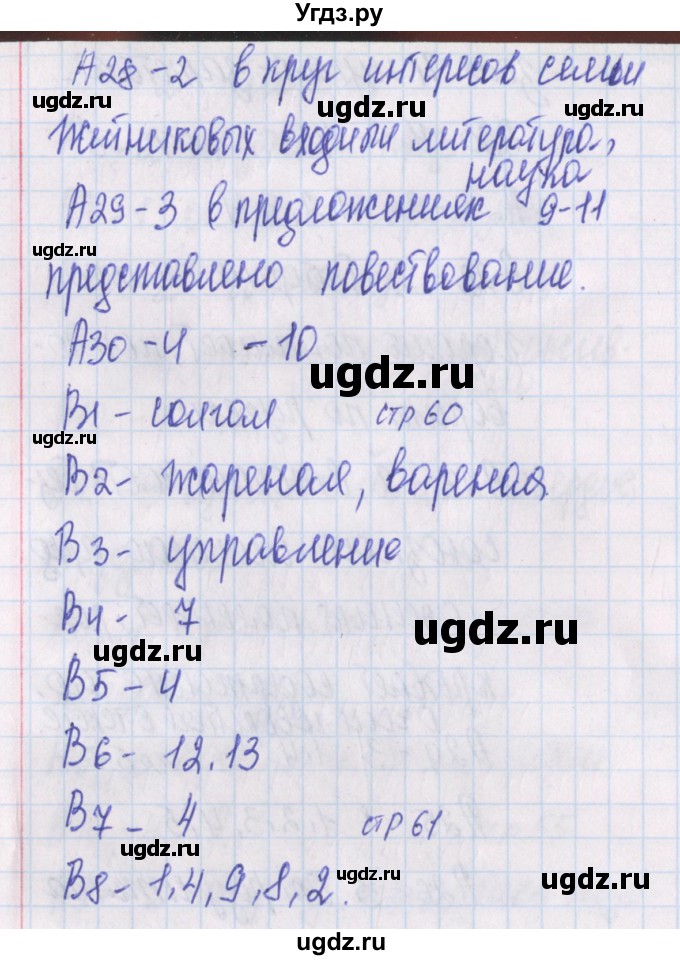 Угдз.ру
А28 - 2 в круг интересов семьи
ugdz.ru ugdz.ru
Житниковых входили литература,
наука
ugdz.ru
А29 - 3 в предложениях 9-11
ugdz.ru
представлено повествование.
А30 - 4 - 10
ugdz.ru
В1 - солгал стр 60
ugdz.ru
В2 - жареная, вареная
В3 - управление
В4 - 7
ugdz.ru
ugdz.ru
В5 - 4
В6 - 12.13
В7 - 4 стр 61
ugdz.ru
В8 - 1, 4, 9, 8, 2.
ugdz.ru
ugdz.ru